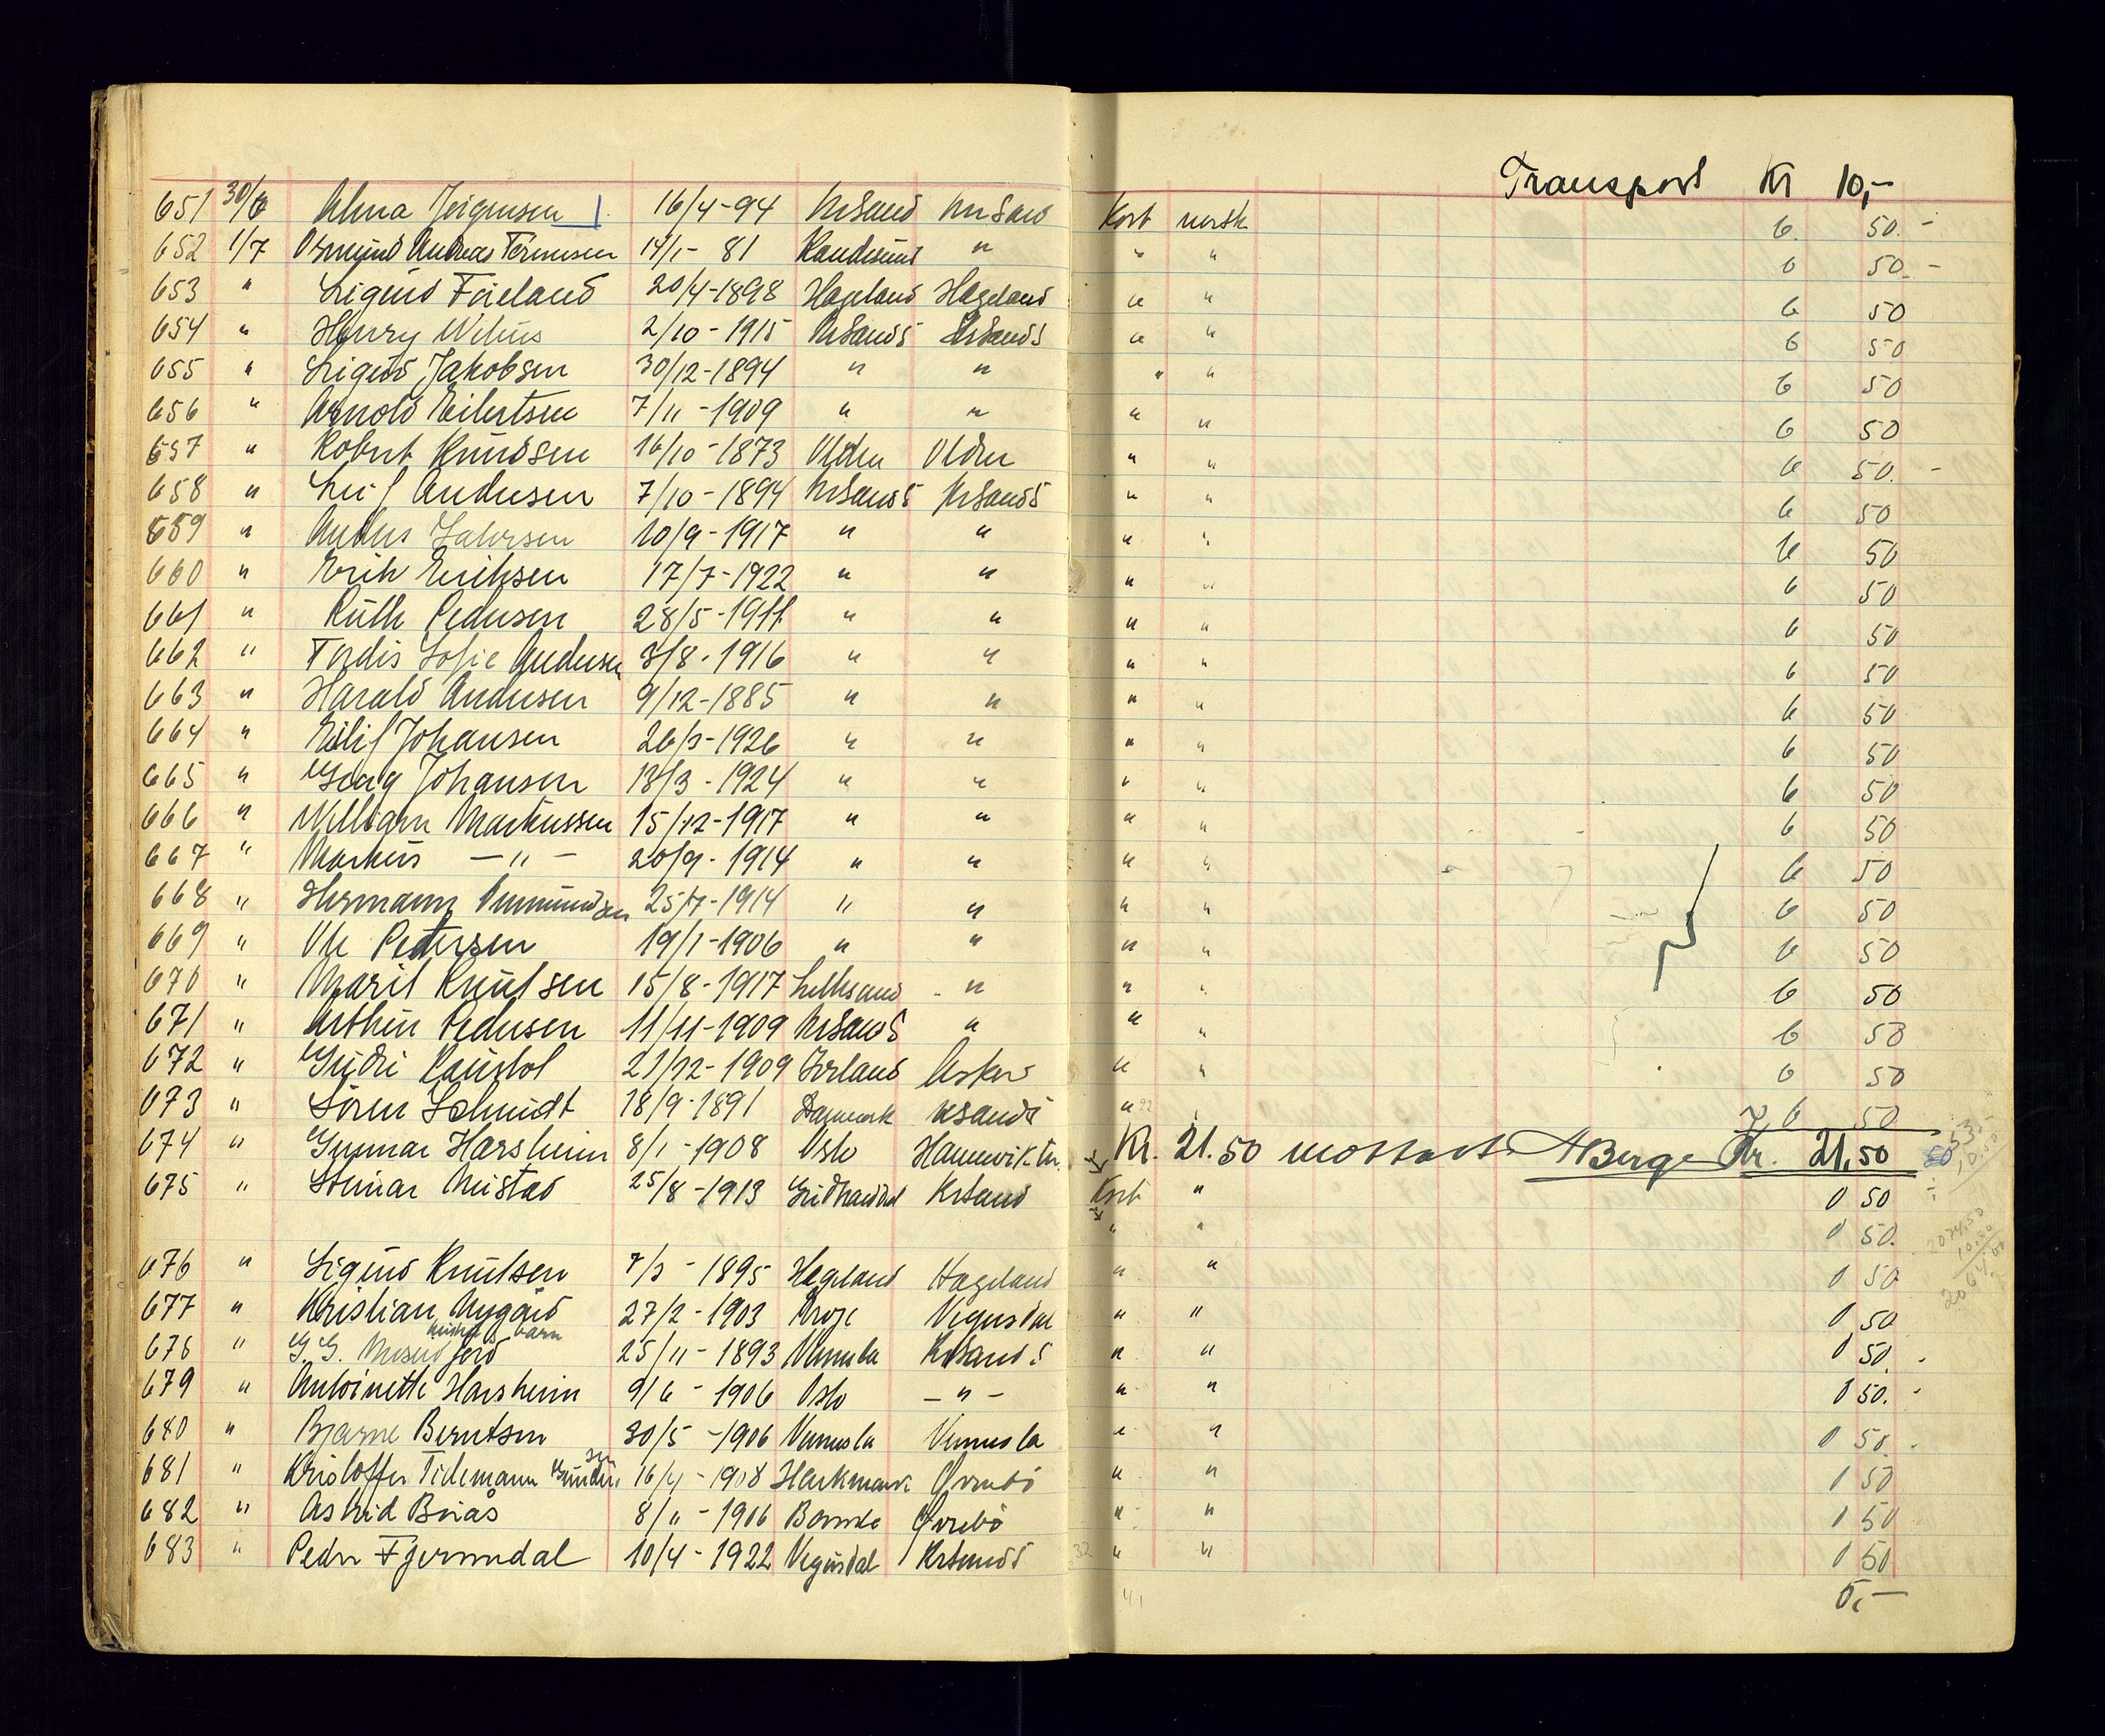 Transport Kr 10,-
651 30/6 Alma Jörgensen 16/4-94 KrSand KrSand Kort norsk 0. 50.-
652 1/7 Osmund Andreas Tönnesen 14/1-81 Randesund " " " 0 50.-
653 " Sigurd 20/4-1898 Hægeland Hægeland " " 0 50
654 " Henry 2/10-1915 KrSandS KrSandS " " 0 50
655 " Sigurd Jakobsen 30/12-1894 " " " " 0 50
656 " Arnold Eilertsen 7/11-1909 " " " " 0 50
657 " Robert Knudsen 16/10-1873 " " 0 50.-
658 " Leif Andersen 7/10-1894 KrSandS KrSandS " " 0 50
659 " Anders 10/9-1917 " " " " 0 50
660 " Erik Eriksen 17/7-1922 " " " " 0 50
661 " Ruth Pedersen 28/5-1911 " " " " 0 50
662 " Tordis Sofie Andersen 3/8-1916 " " " " 0 50
663 " Harald Andersen 9/12-1885 " " " " 0 50
664 " Eilif Johansen 26/3-1926 " " " " 0 50
665 " Georg Johansen 13/3-1924 " " " " 0 50
666 " William Markussen 15/12-1917 " " " " 0 50
667 " Markus -"- 20/9-1914 " " " " 0 50
668 " Hermann Ommundsen 25/7-1914 " " " " 0 50
669 " Ole Pettersen 19/1-1906 " " " " 0 50
670 " Marit Knutsen 15/8-1917 Lillesand -" " " 0 50
671 " Arthur Pedersen 11/11-1909 KrSandS " " " 0 50
672 " Gudri 21/12-1909 " " 0 50
673 " Sören Schmidt 18/9-1891 Danmark KrsandS " " 0 50
674 " Gunnar Harsheim 8/1-1908 Oslo Kr. 21.50 mottatt ABerge Kr. 21,50
675 " Steinar Mustad 25/8-1913 KrSand Kort " 0 50
" " 0 50.
676 " Sigurd Knutsen 7/3-1895 Hægeland Hægeland " " 0 50
677 " Kristian Nygård 27/2-1903 Vegusdal " " 0 50
barn
678 " G. G. 25/11-1893 Vennesla KrSandS " " 0 50.-
679 " Antoinette Harsheim 9/6-1906 Oslo -"- " " 0 50.-
680 " Bjarne Berntsen 30/5-1906 Vennesla Vennesla " " 0 50.-
681 " Kristoffer Tidemann 16/4-1908 Øvrebö " " 0 50
682 " Astrid Buås 8/11-1906 Øvrebö " " 0 50
683 " Peder Fjermedal 10/4-1922 Vegusdal KrSandS 32 " " 0 50
41 5,-